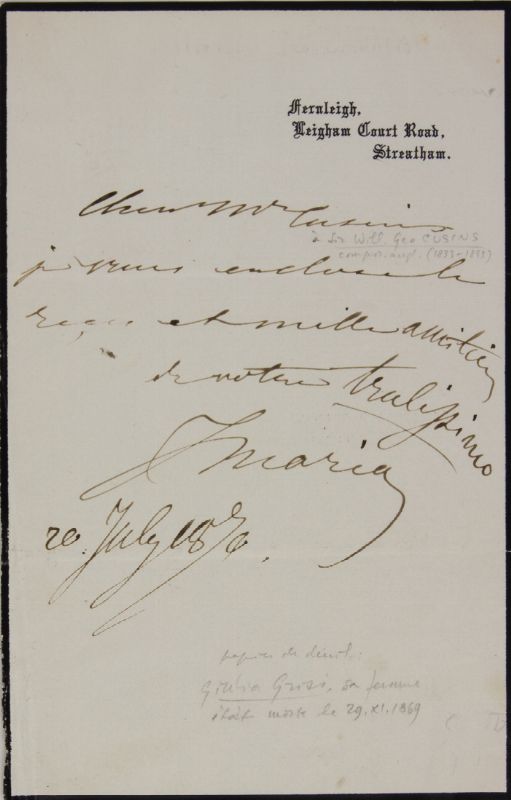 Fernleigh,
Leigham Court Road,
Streatham.
Cher Mr Cusins
à Sir Will. Geo CUSINS
compos. angl. (1833-1893)
je vous enclose le
reçu et mille amitiés
de votre
Maria
20 July 1870.
papier de deuil:
Giulia Grisi, sa femme
était morte le 29.XI.1869